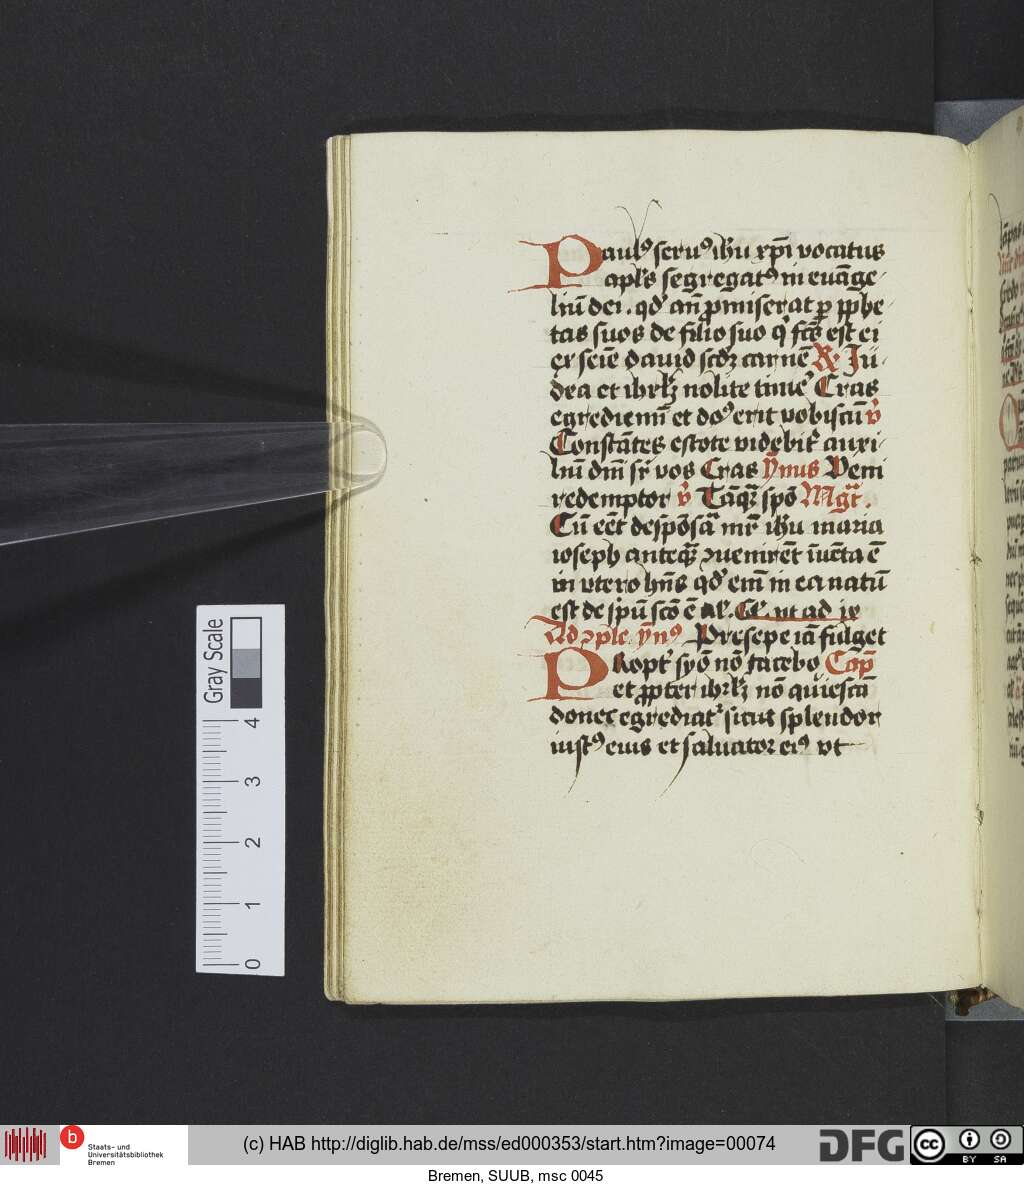 Paul⁹ seru⁹ ih̄u xp̄i vocatus
apl's segregat⁹ in euāge
liū dei . qd' an̄ ꝓmiserat ꝑ ꝓphe
tas suos de filio suo q' fc̄s est ei
ex seīe dauid scd'z carnē R Iu
dea et ihrl'z nolite time' Cras
egredie mī et do⁹ erit vobiscū v̄
Constātes estote videbit' auxi
liū dnī sr̄ vos Cras ȳmus Veni
redemptor v̄ Tāqz spō Mgt̄.
Cū eēt despōsa mr̄ ih̄u maria
ioseph anteqz ꝯuenirēt īuēta ē
in vtero hn̄s qd' enī in ea natū
est de sp̄u scō ē al'. Cl'. vt ad ie
Ad ꝯple. ȳn⁹ Presepe iā fulget
PRopt' syō nō tacebo Cap̄
et ꝓpter ihrl'z nō quiescā
donec egrediat' sicut splendor
iust⁹ eius et saluator ei⁹ vt
Gray Scale
4
3
2
1
0
b
Staats- und
Universitätsbibliothek
Bremen
(c) HAB http://diglib.hab.de/mss/ed000353/start.htm?image=00074
DFG
cc
BY SA
Bremen, SUUB, msc 0045